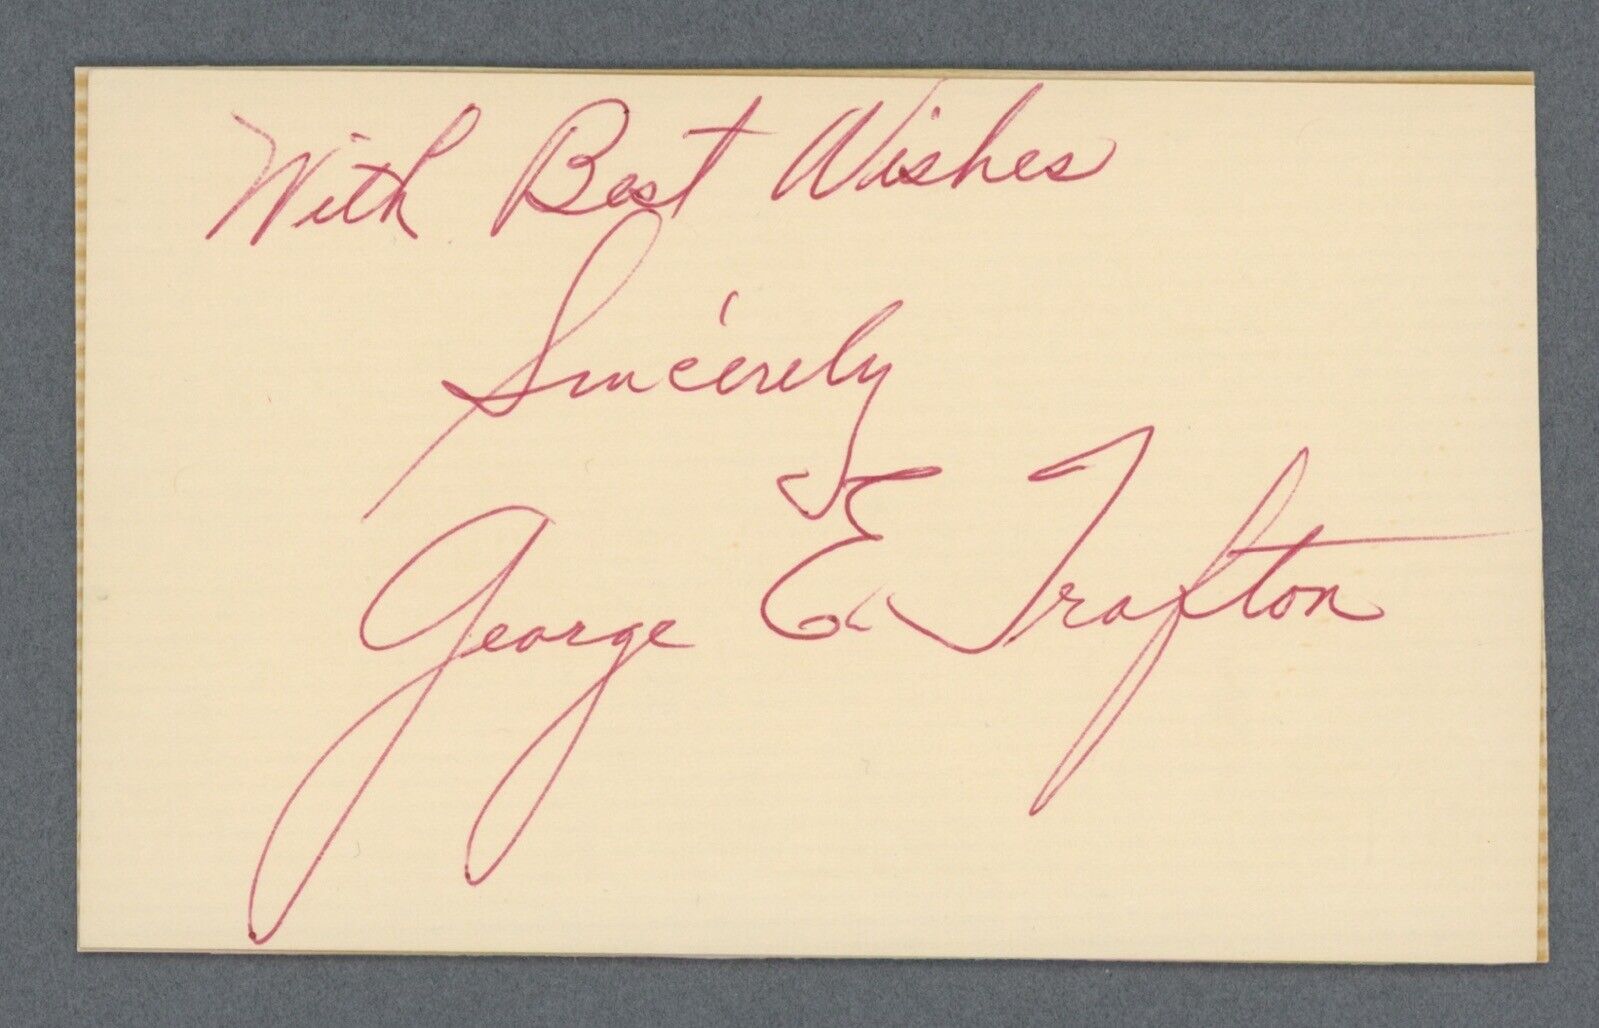 With Best Wishes
Sincerely
George E. Trafton